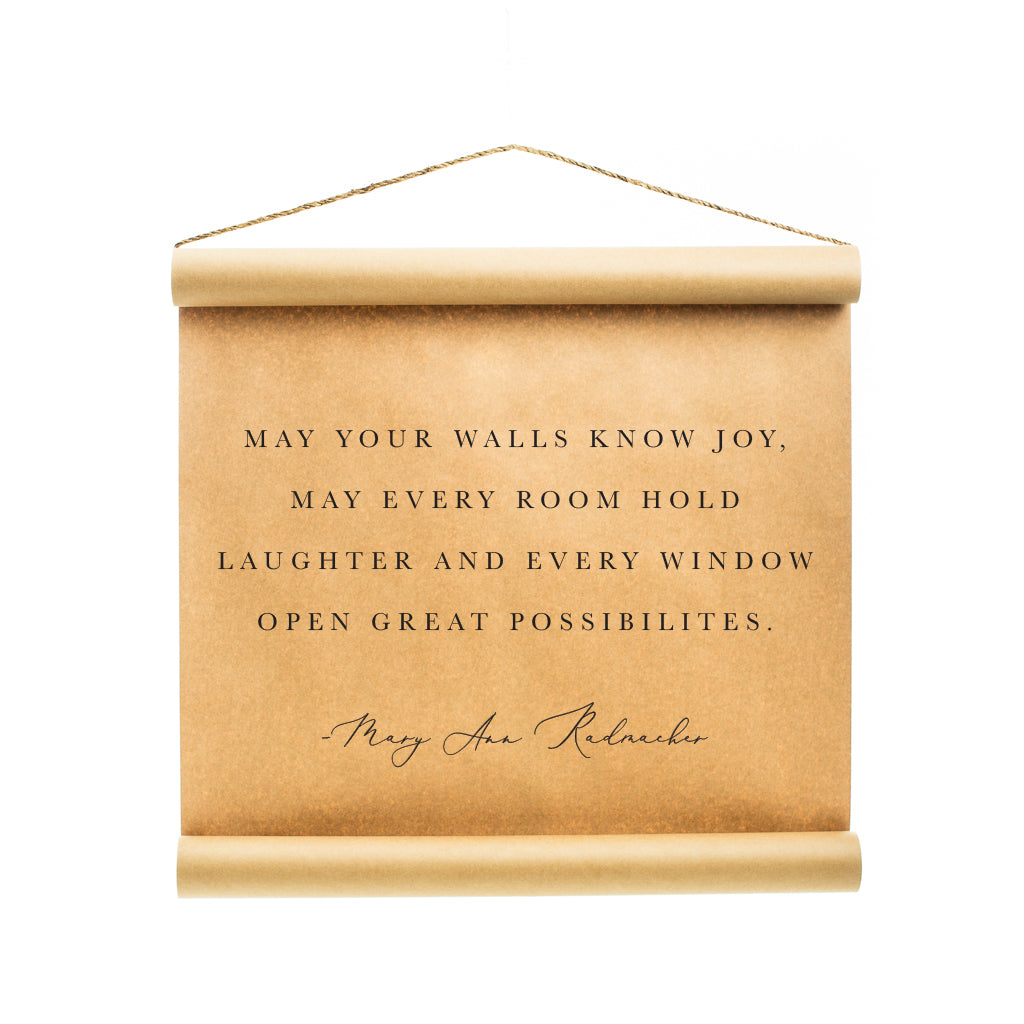 MAY YOUR WALLS KNOW JOY,
MAY EVERY ROOM HOLD
LAUGHTER AND EVERY WINDOW
OPEN GREAT POSSIBILITES.
-Mary Ann Radmacher